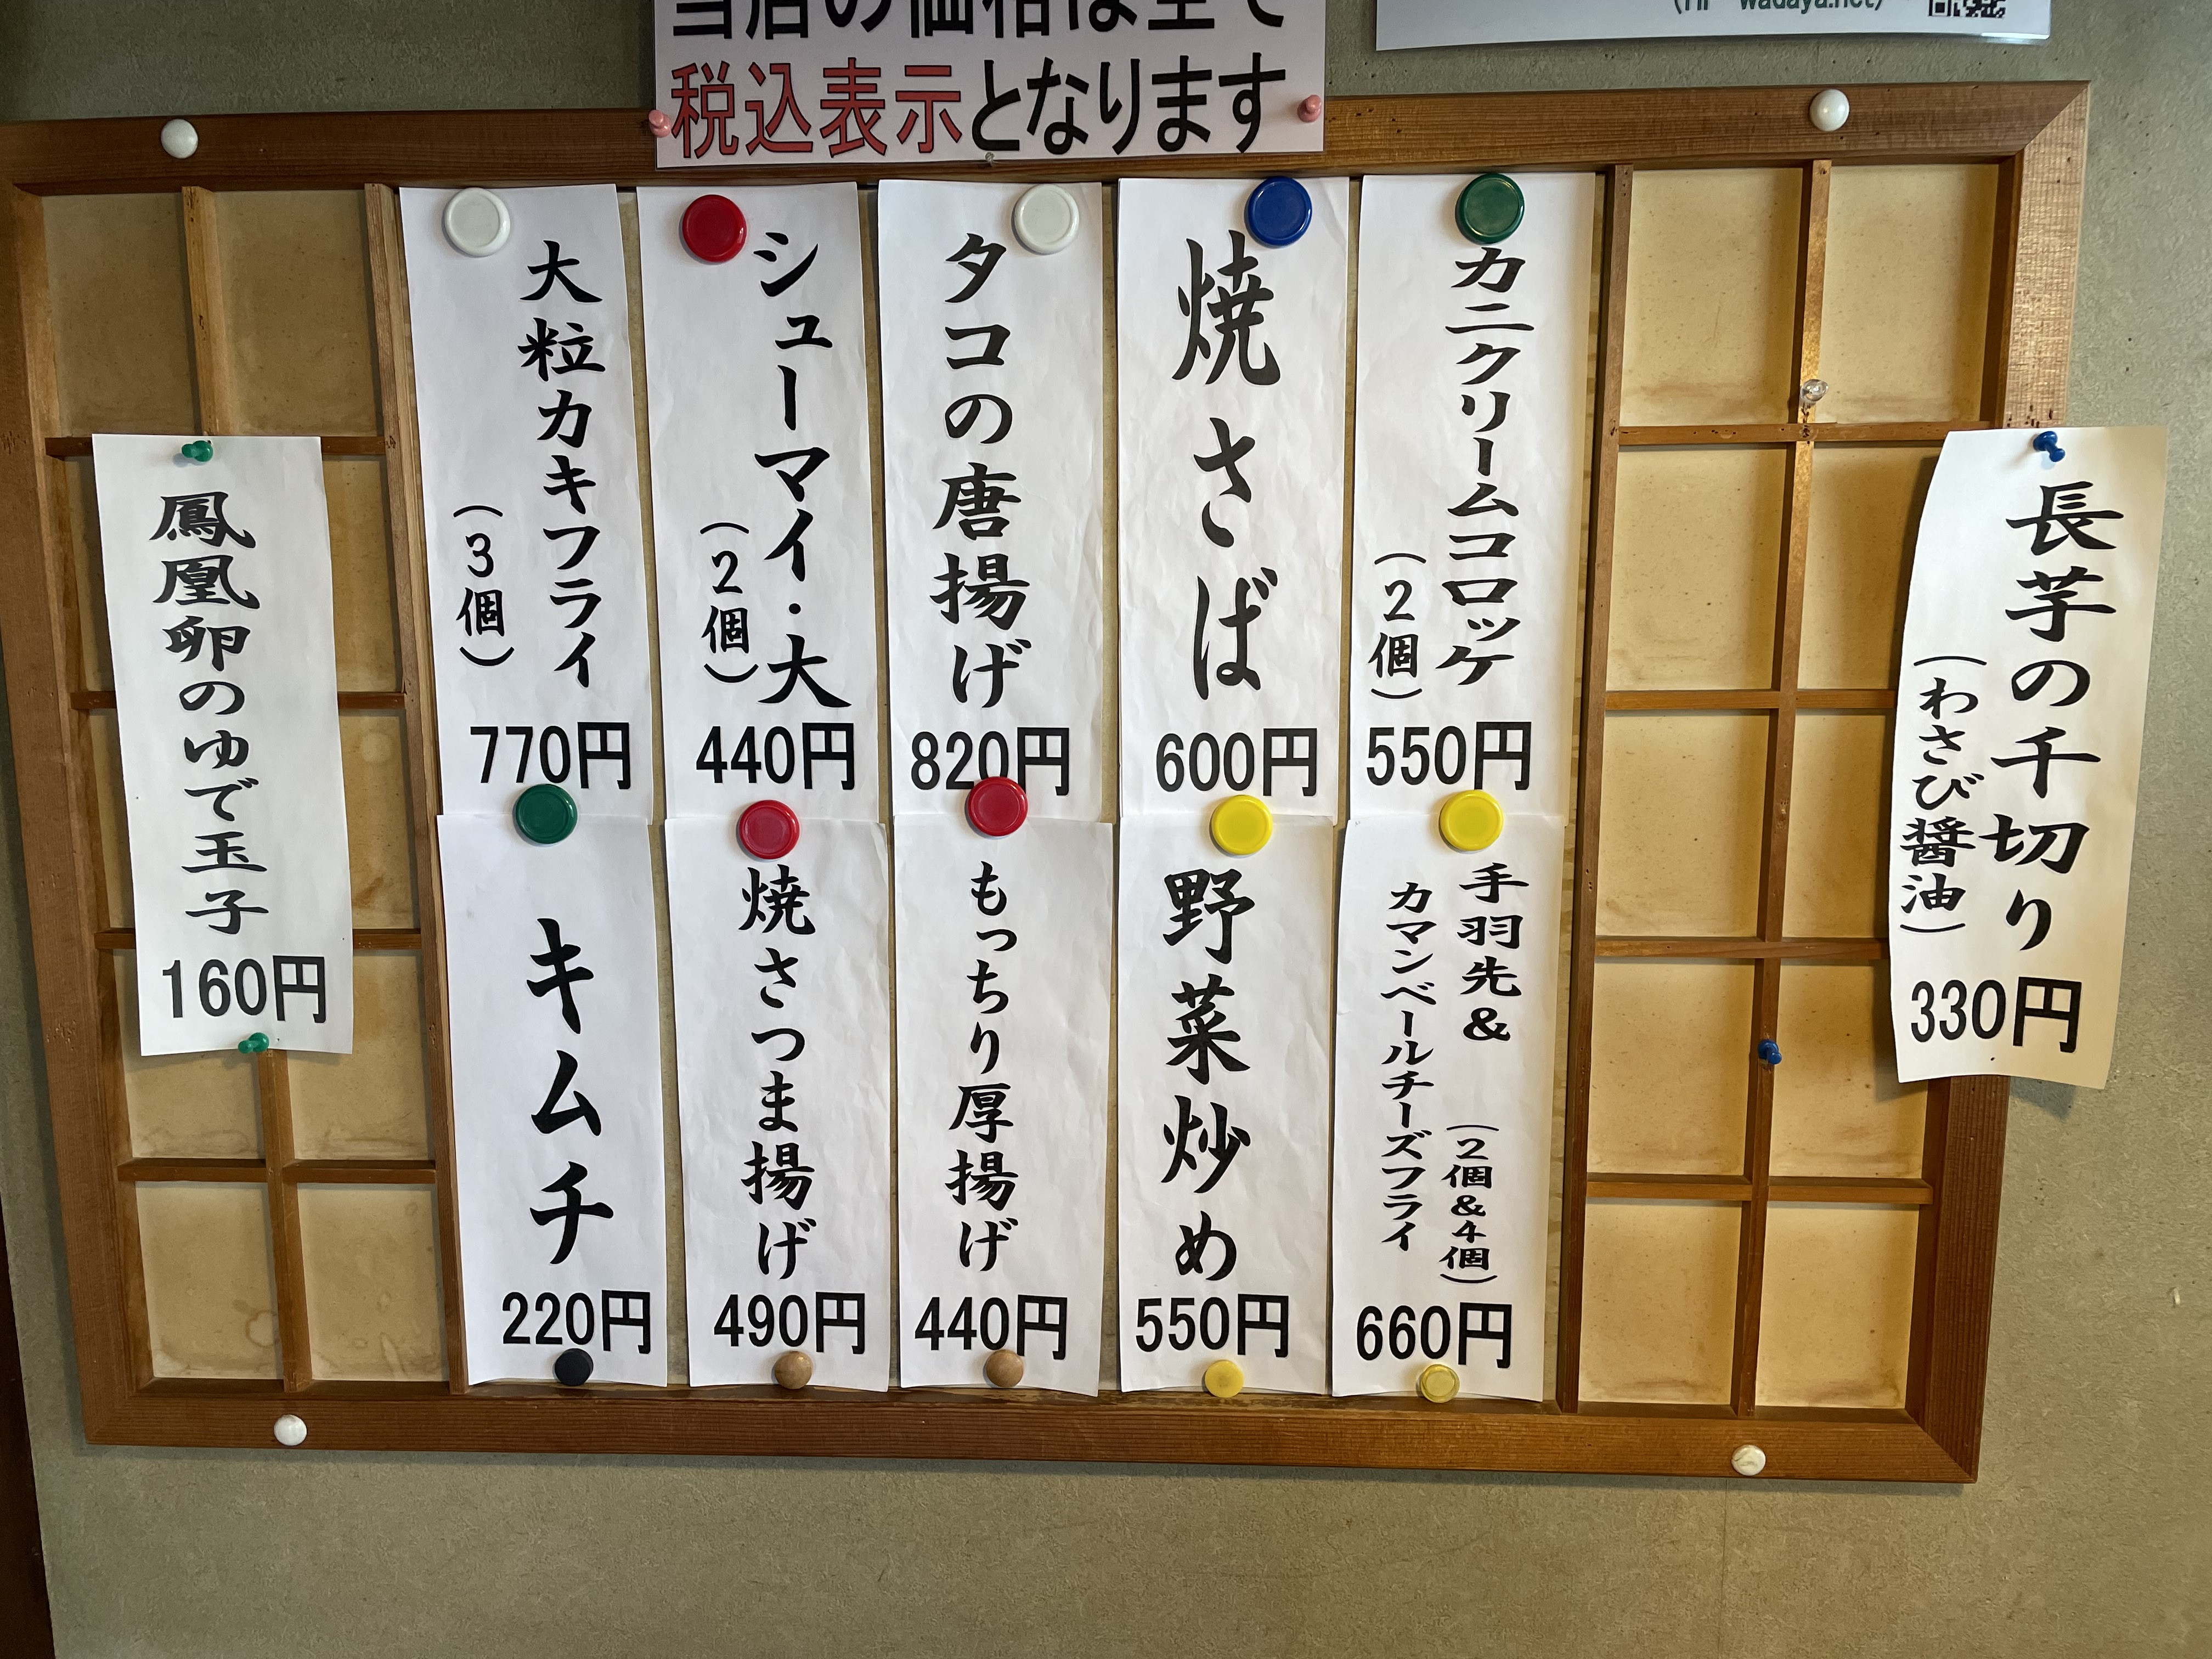 当店の価格は全て
税込表示となります
(HP wadaya.net)
長芋の千切り
(わさび醤油)
330円
カニクリームコロッケ
(2個)
550円
焼さば
600円
タコの唐揚げ
820円
シューマイ・大
(2個)
440円
大粒カキフライ
(3個)
770円
手羽先&
(2個&4個)
カマンベールチーズフライ
660円
野菜炒め
550円
もっちり厚揚げ
440円
焼さつま揚げ
490円
キムチ
220円
鳳凰卵のゆで玉子
160円